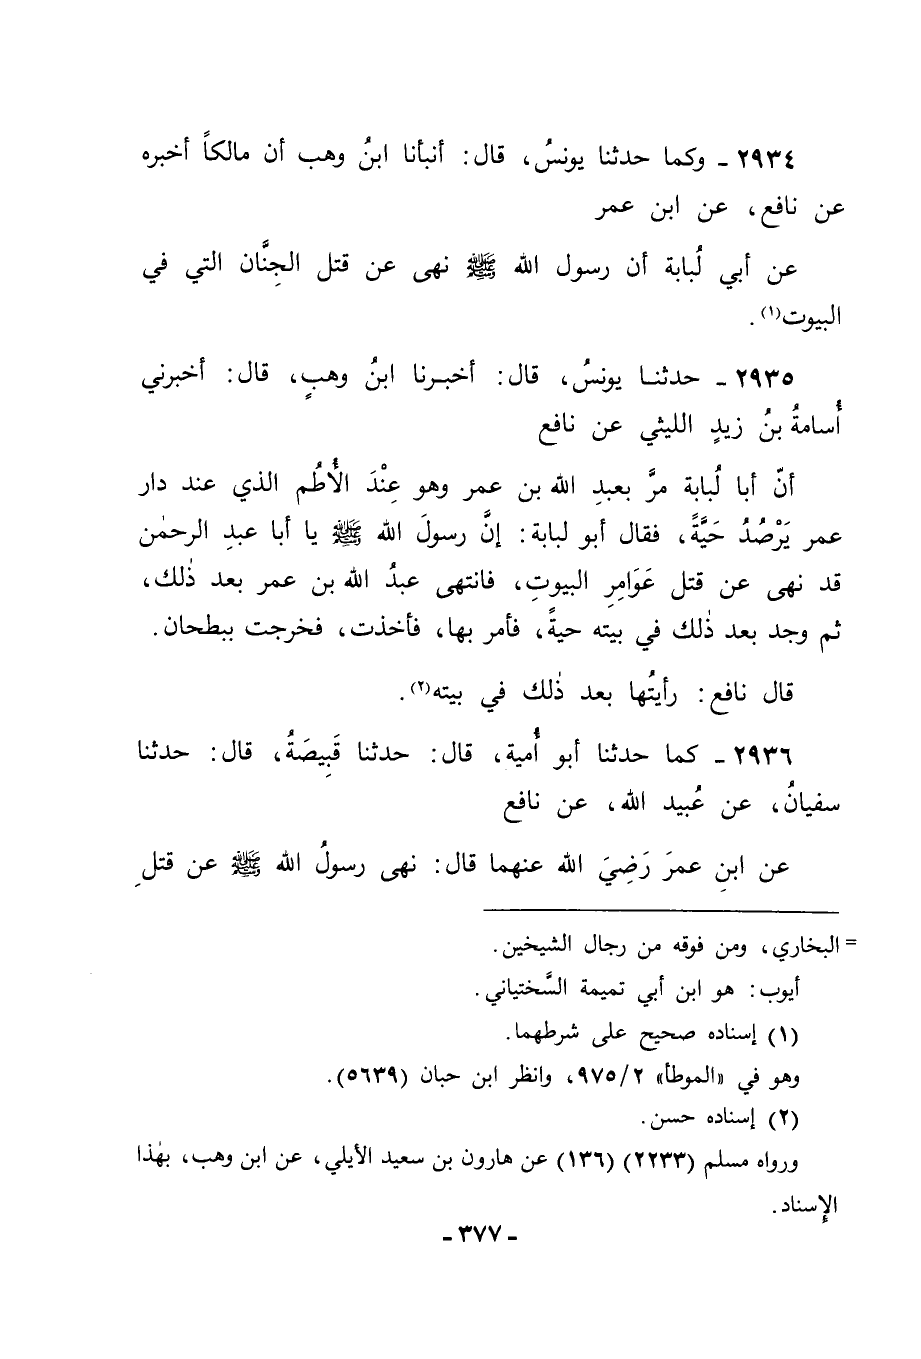 ٢٩٣٤ ـ وكما حدثنا يونسُ، قال: أنبأنا ابنُ وهب أن مالكاً أخبره
عن نافع، عن ابن عمر
عن أبي لُبابة أن رسول الله ﷺ نهى عن قتل الجِنَّان التي في
البيوت(١).
٢٩٣٥ ـ حدثنا يونسُ، قال: أخبرنا ابنُ وهبٍ، قال: أخبرني
أُسامةُ بنُ زيدٍ الليثي عن نافع
أنّ أبا لُبابة مرَّ بعبدِ الله بن عمر وهو عِنْدَ الأُطُم الذي عند دار
عمر يَرْصُدُ حَيَّةً، فقال أبو لبابة: إنَّ رسولَ الله ﷺ يا أبا عبدِ الرحمٰن
قد نهى عن قتل عَوَامِرِ البيوتِ، فانتهى عبدُ الله بن عمر بعد ذٰلك،
ثم وجد بعد ذٰلك في بيته حيةً، فأمر بها، فأخذت، فخرجت ببطحان.
قال نافع: رأيتُها بعد ذٰلك في بيته(٢).
٢٩٣٦ ـ كما حدثنا أبو أُمية، قال: حدثنا قَبِيصَةُ، قال: حدثنا
سفيانُ، عن عُبيد الله، عن نافع
عن ابنِ عمرَ رَضِيَ الله عنهما قال: نهى رسولُ الله ﷺ عن قتلِ
= البخاري، ومن فوقه من رجال الشيخين.
أيوب: هو ابن أبي تميمة السَّختياني.
(١) إسناده صحيح على شرطهما.
وهو في «الموطأ» ٩٧٥/٢، وانظر ابن حبان (٥٦٣٩).
(٢) إسناده حسن.
ورواه مسلم (٢٢٣٣) (١٣٦) عن هارون بن سعيد الأيلي، عن ابن وهب، بهٰذا
الإِسناد.
ـ ٣٧٧ ـ